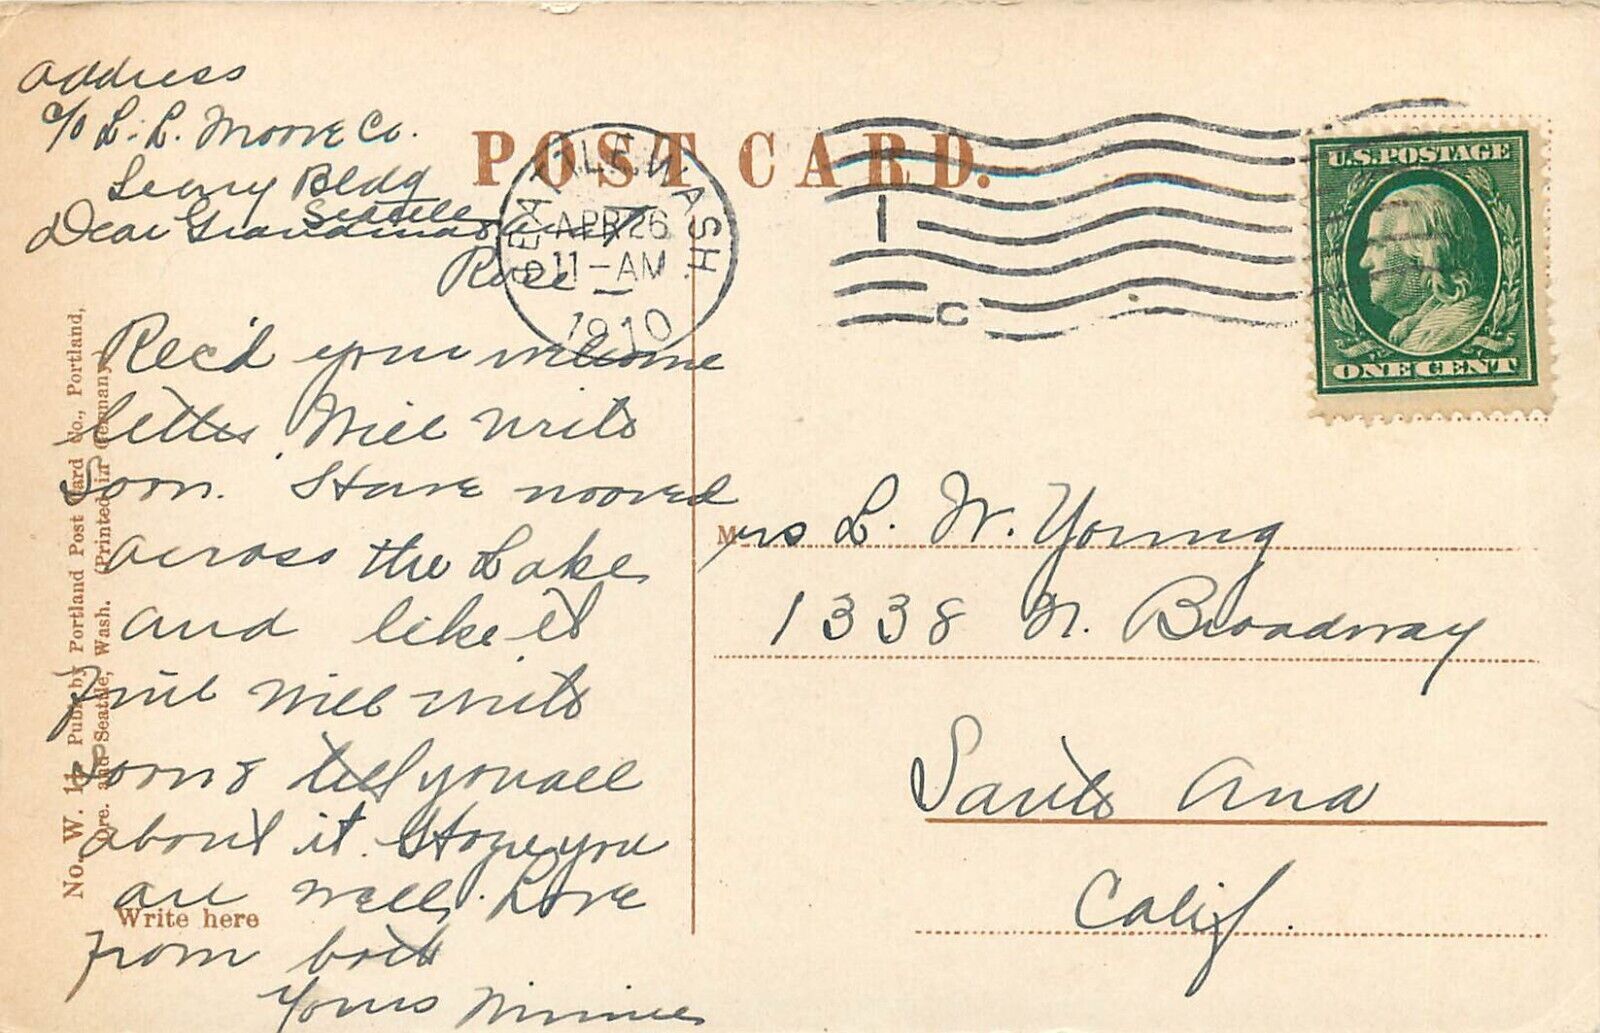 address
c/o L. L. Moore Co.
Leary Bldg
Seattle
Dear Grandma &
Rose
Rec'd your welcome
letter. Will write
soon. Have mooved
across the Lake
and like it
fine will write
soon & tell you all
about it. Hope you
are well. Love
from both
Yours Minnie
POST CARD.
SEATTLE, WASH.
APR 26
11-AM
1910
1
C
U.S. POSTAGE
ONE CENT
Mrs L. W. Young
1338 N. Broadway
Santa Ana
Calif.
No. W. 11. Publ. by Portland Post Card Co., Portland,
Ore. and Seattle, Wash. (Printed in Germany)
Write here